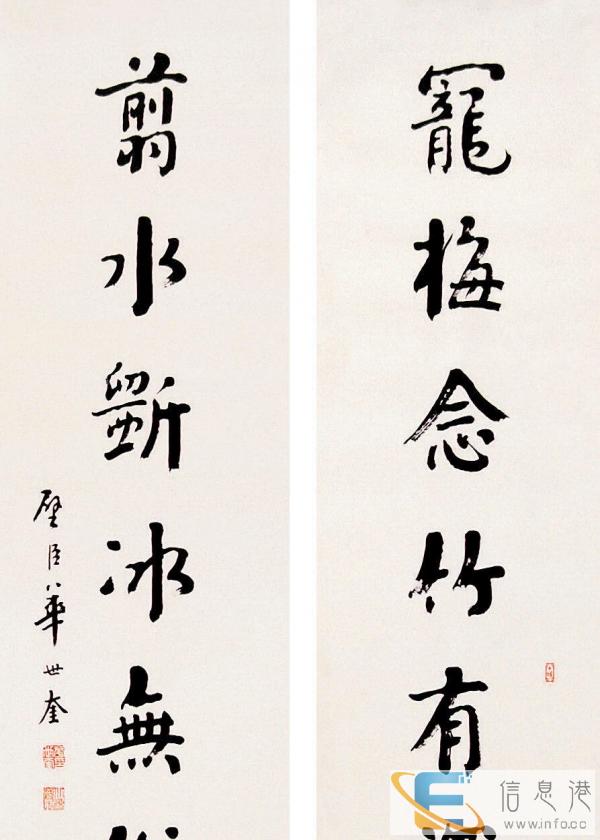 寵梅念竹有
翦水斲冰無
璧臣華世奎
信息港
www.info.cc